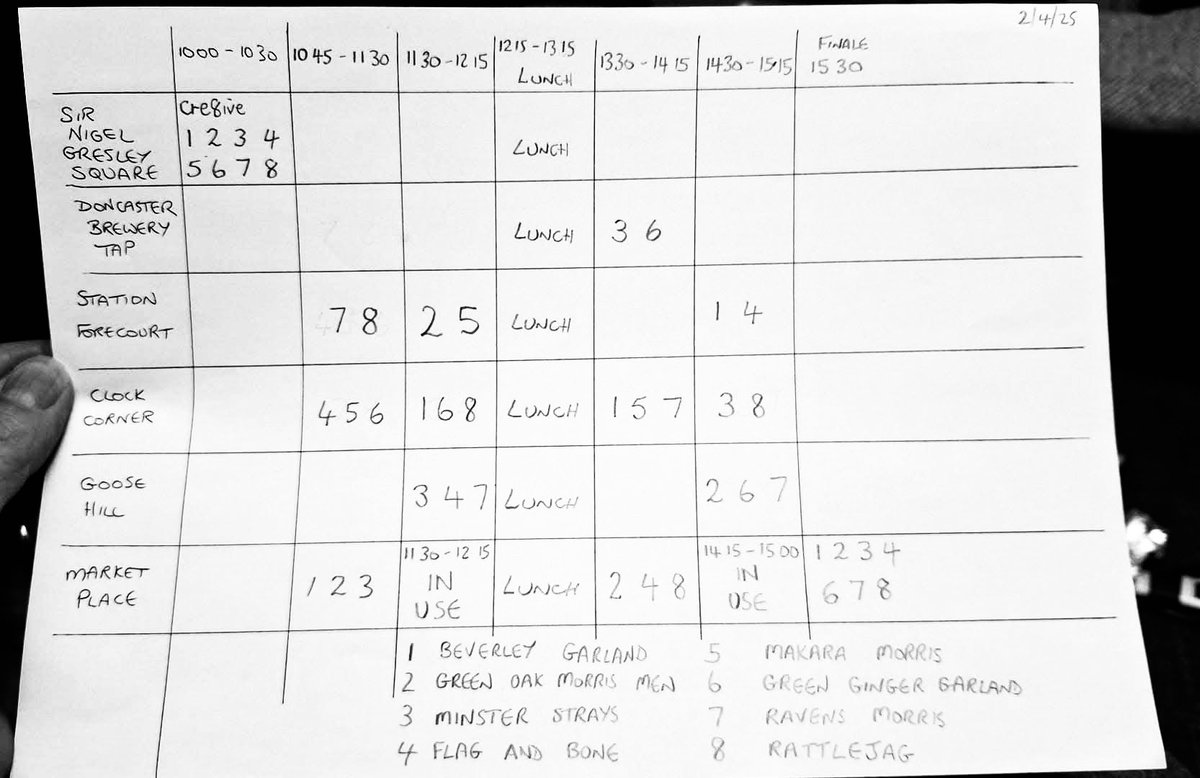 2/4/25
1000 - 1030 1045 - 1130 1130 - 1215 1215 - 1315 LUNCH 1330 - 1415 1430 - 1515 FINALE 1530
SIR NIGEL GRESLEY SQUARE
Cre8ive
1 2 3 4
5 6 7 8
LUNCH
DONCASTER BREWERY TAP
LUNCH
3 6
STATION FORECOURT
7 8
2 5
LUNCH
1 4
CLOCK CORNER
4 5 6
1 6 8
LUNCH
1 5 7
3 8
GOOSE HILL
3 4 7
LUNCH
2 6 7
MARKET PLACE
1 2 3
1130 - 1215
IN
USE
LUNCH
2 4 8
1415 - 1500
IN
USE
1 2 3 4
6 7 8
1 BEVERLEY GARLAND 5 MAKARA MORRIS
2 GREEN OAK MORRIS MEN 6 GREEN GINGER GARLAND
3 MINSTER STRAYS 7 RAVENS MORRIS
4 FLAG AND BONE 8 RATTLEJAG